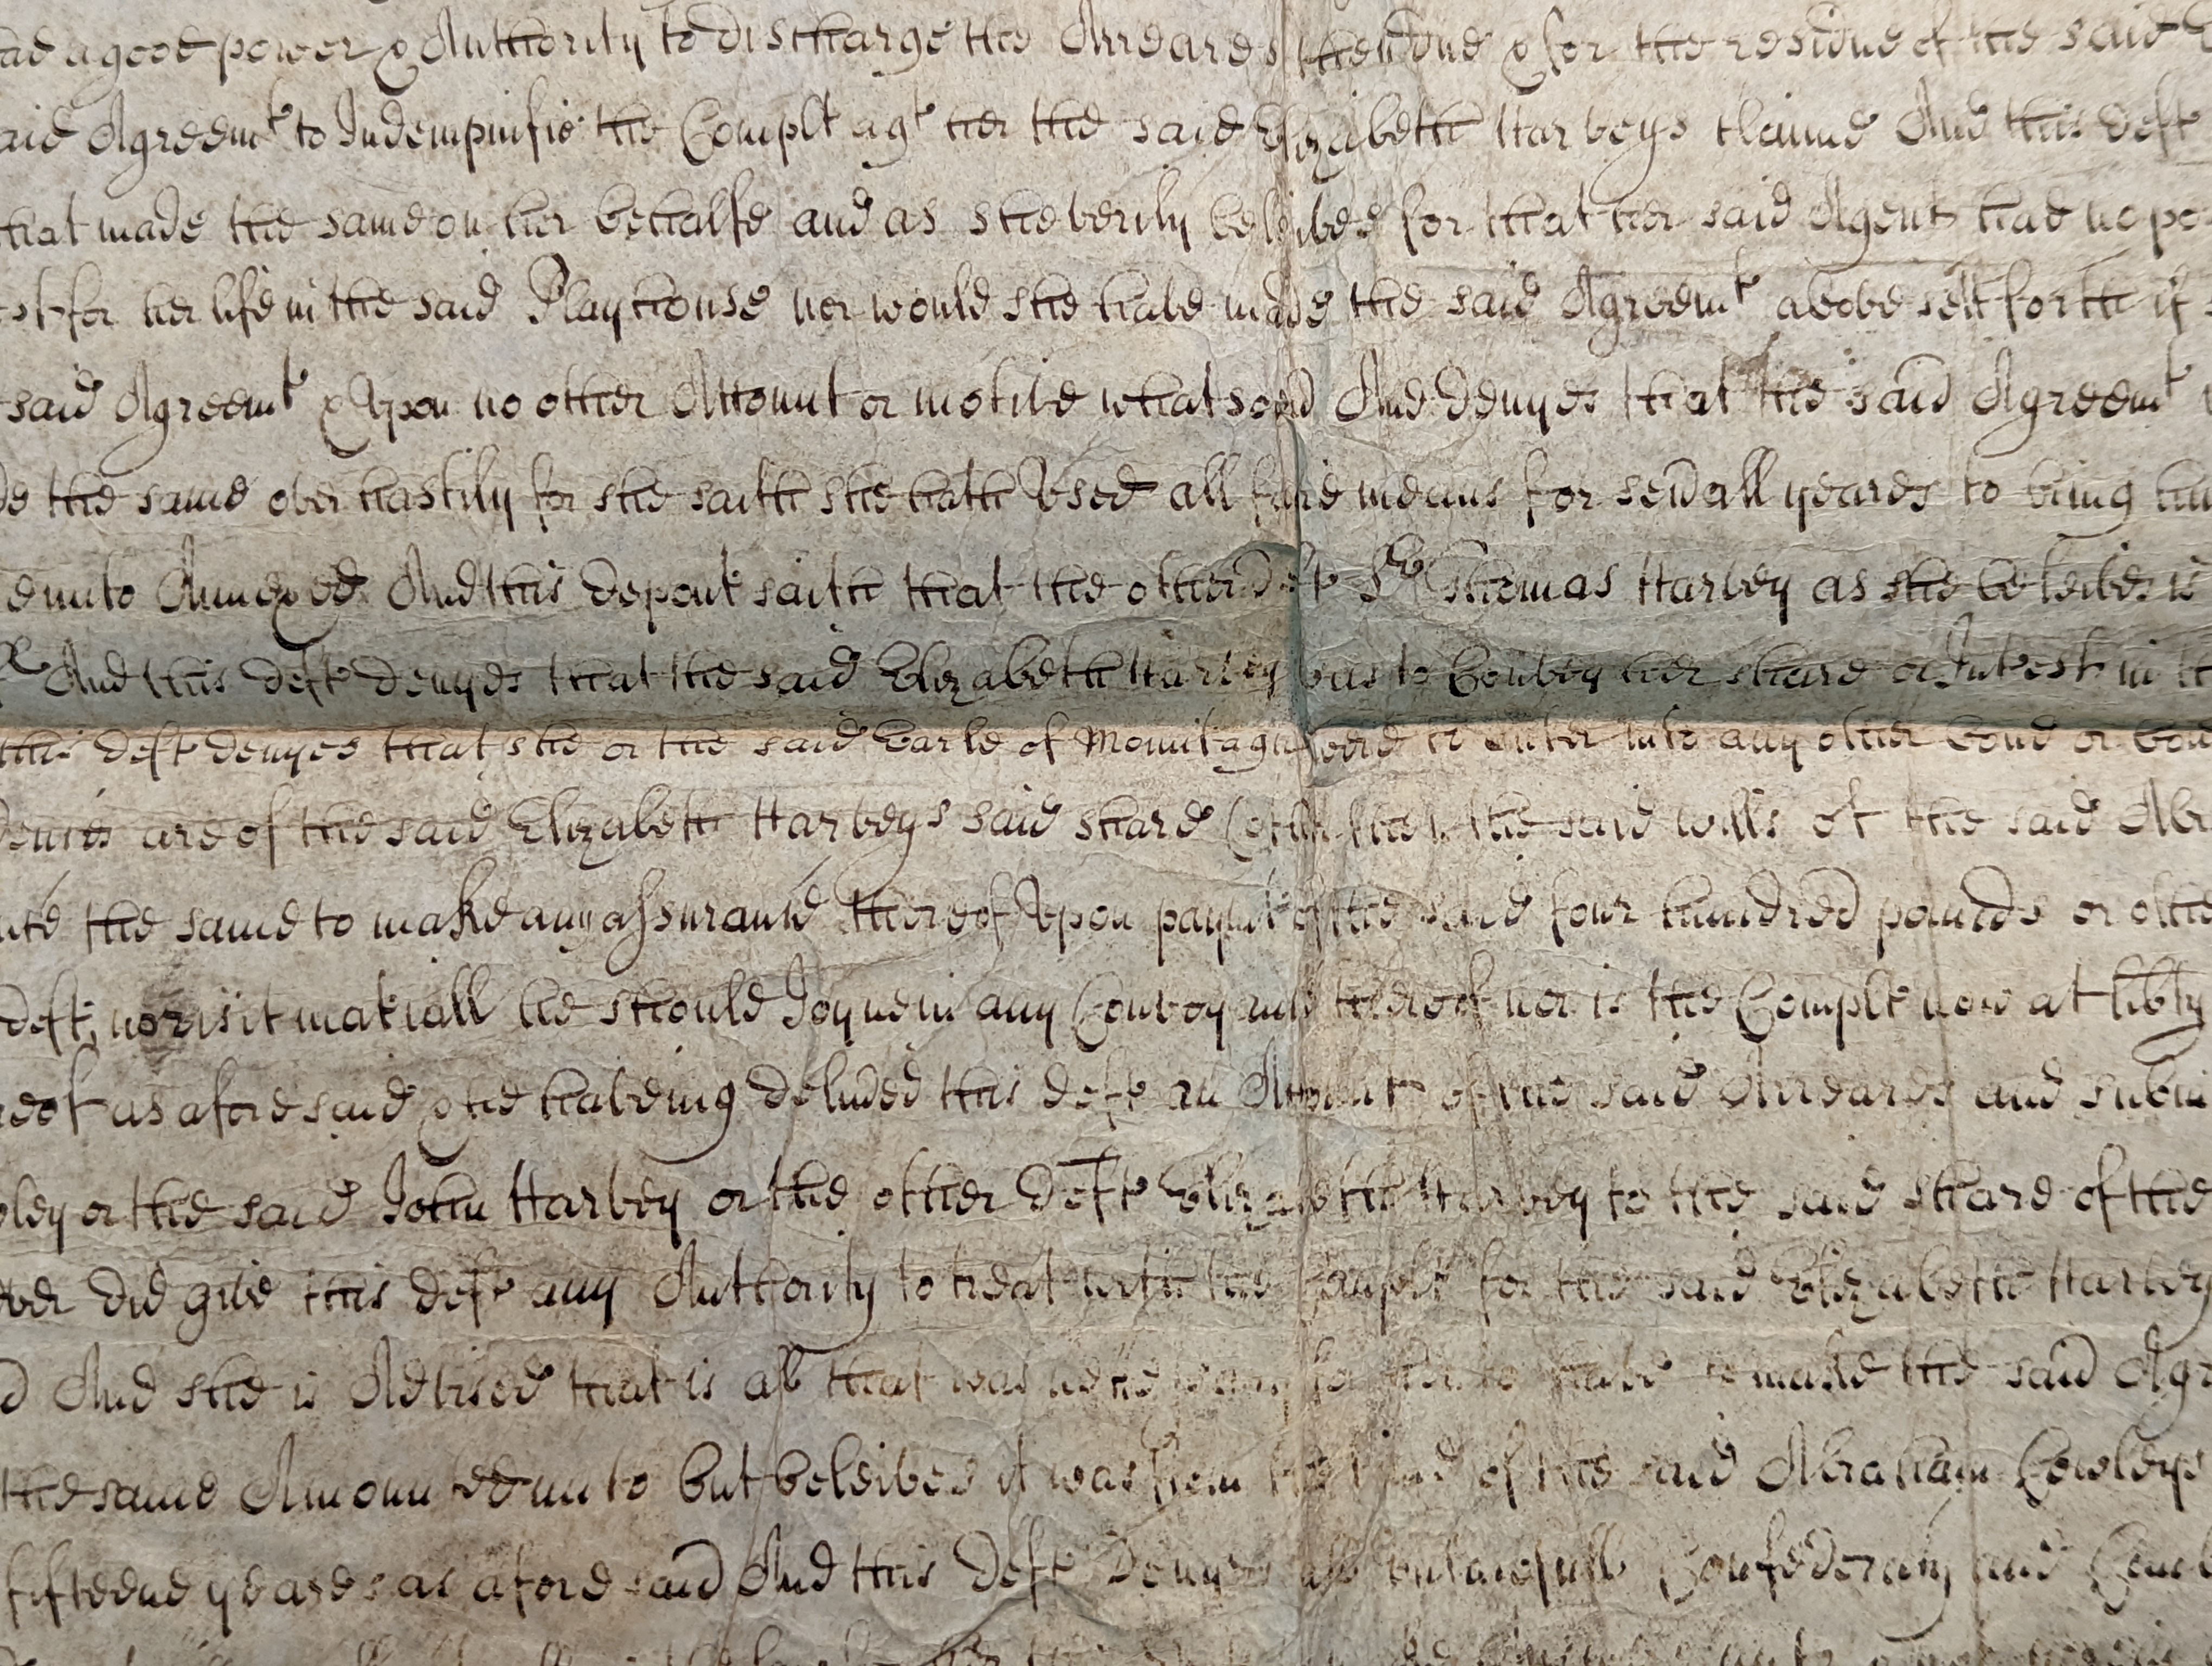 ad a good power & Authority to discharge the Arreares then due & for the residue of the said
aid Agreemt to Indempnifie the Complt agt her the said Elizabeth Harveys clayme And this Deft
that made the same on her behalfe and as she verily beleives for that her said Agent had no po
st for her life in the said Playhouse nor would she have made the said Agreemt above sett forth if
said Agreemt & Upon no other Account or motive whatsoever And denyes that the said Agreemt
the same over hastily for she saith she hath Used all faire means for sevall yeares to bring him
eunto Annexed And this deponent saith that the other Deft Sr Thomas Harvey as she beleives is
And this Deft denyes that the said Elizabeth Harvey was to Convey her share or Intrest in the
this deft denyes that she or the said Earle of Mountague were to Enter into any other bond or
are of the said Elizabeth Harveys said share the said wills of the said Abr
the same to make any assurance thereof Upon paymt of the said four hundred pounds or othe
deft, nor is it matiall he should Joyne in any Conveyance thereof nor is the Complt now at libty
reof as aforesaid & he haveing deluded this deft on Account of the said Arreares and
ley or the said John Harvey or the other Deft Elizabeth Harvey to the said share of the
ver did give this deft any Authority to treat with the Complt for the said Elizabeth Harvey
And she is Advised that is all that was necessary for her to have to make the said Agr
the same Amounted unto but beleives it was from the of the said Abraham Cowleys
fifteene yeares as aforesaid And this Deft Denyes all unlawfull Confederacy and